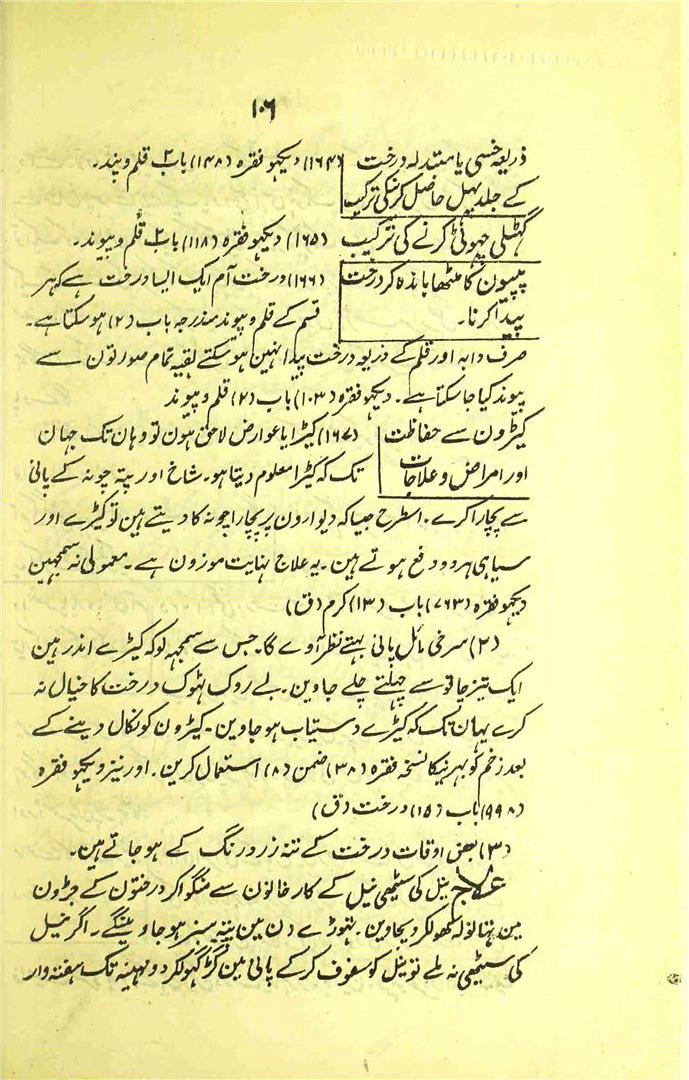 ۱۰۶
ذریعہ خسی یا ہتندلہ درخت (۱۶۴) دیکھو فقرہ (۱۴۸) باب ۲ قلم و پیند۔
کے جلد پہل حاصل کرنیکی ترکیب
گہٹلی چہوٹی کرنے کی ترکیب (۱۶۵) دیکھو فقرہ (۱۱۸) باب ۲ قلم و پیوند۔
پیسون کا مٹھا باندہ کر درخت (۱۶۶) درخت آم ایک ایسا درخت ہے کہ ہر
پیدا کرنا۔ قسم کے قلم و پیوند مندرجہ باب (۲) ہو سکتا ہے۔
صرف دابہ اور قلم کے ذریعہ درخت پیدا نہین ہو سکتے لقبیہ تمام صورتون سے
پیوند کیا جا سکتا ہے۔ دیکہو فقرہ (۱۰۳) باب (۲) قلم و پیوند
کیڑون سے حفاظت (۱۶۷) کیڑا یا عوارض لاحق ہون تو وہان تک جہان
اور امراض و علاجات تک کہ کیڑا معلوم دیتا ہو۔ شاخ اور پتہ چونہ کے پانی
سے پچارا کرے۔ اسطرح جیسا کہ دیوارون پر پچارا چونہ کا دیتے ہین تو کیڑے اور
سیاہی ہر دو دفع ہوتے ہین۔ یہ علاج نہایت موزون ہے۔ معمولی نہ سمجہین
دیکہو فقرہ (۷۶۳) باب (۱۳) کرم (ق)
(۲) سرخی مائل پانی بہتے نظر آوے گا۔ جس سے سمجہہ لو کہ کیڑے اندر ہین
ایک تیز چاقو سے چہلتے چلے جاوین۔ بے روک ٹہوک درخت کا خیال نہ
کرے یہان تک کہ کیڑے دستیاب ہو جاوین۔ کیڑون کو نکال دینے کے
بعد زخم کو بہرنیکا نسخہ فقرہ (۳۸) ضمن (۸) استعمال کرین۔ اور نیز دیکہو فقرہ
(۹۹۸) باب (۱۵) درخت (ق)
(۳) بعض اوقات درخت کے تنہ زرد رنگ کے ہو جاتے ہین۔
علاج نیل کی سیٹھی نیل کے کارخانون سے منگوا کر درختون کے جڑون
مین ہنا تولہ کہولکر دیجاوین۔ تہوڑے دن مین پتہ سبز ہو جاوینگے۔ اگر نیل
کی سیٹھی نہ ملے تو نیل کو سفوف کر کے پانی مین گڑ گہولکر دو مہینہ تک ہفتہ وار